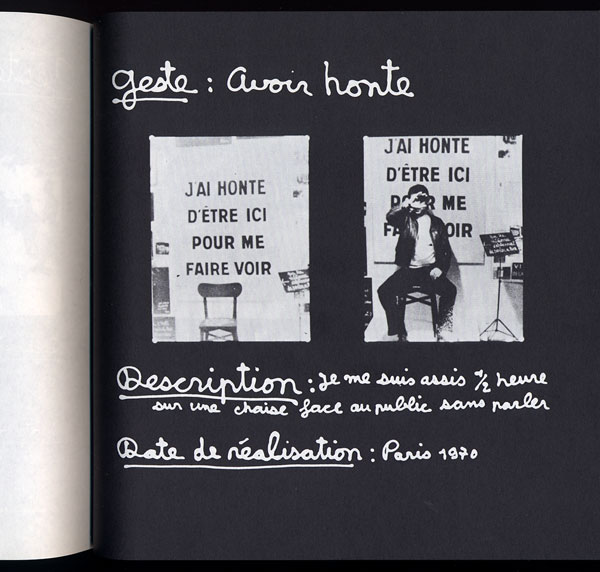 geste : Avoir honte
J'AI HONTE
D'ÊTRE ICI
POUR ME
FAIRE VOIR
J'AI HONTE
D'ÊTRE ICI
ME
OIR
Description : Je me suis assis 1/2 heure
sur une chaise face au public sans parler
Date de réalisation : Paris 1970